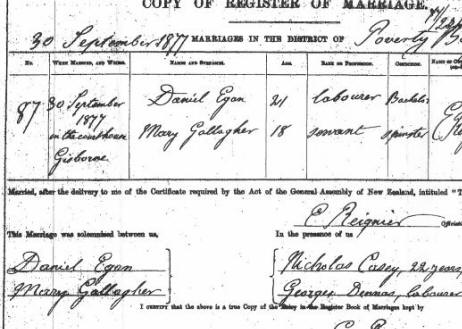 COPY OF REGISTER OF MARRIAGE.
30 September 1877 MARRIAGES IN THE DISTRICT OF Poverty
No. WHEN MARRIED, AND WHERE. NAMES AND SURNAMES. AGE. RANK OR PROFESSION. CONDITION.
87 30 September Daniel Egan 21 labourer Bachelor
1877
in the courthouse Mary Gallagher 18 servant spinster
Gisborne
Married, after the delivery to me of the Certificate required by the Act of the General Assembly of New Zealand, intituled "T
E Reignier
This Marriage was solemnised between us, In the presence of us
Daniel Egan Nicholas Casey, 22 years,
Mary Gallagher Georges labourer
I CERTIFY that the above is a true Copy of the Entry in the Register Book of Marriages kept by